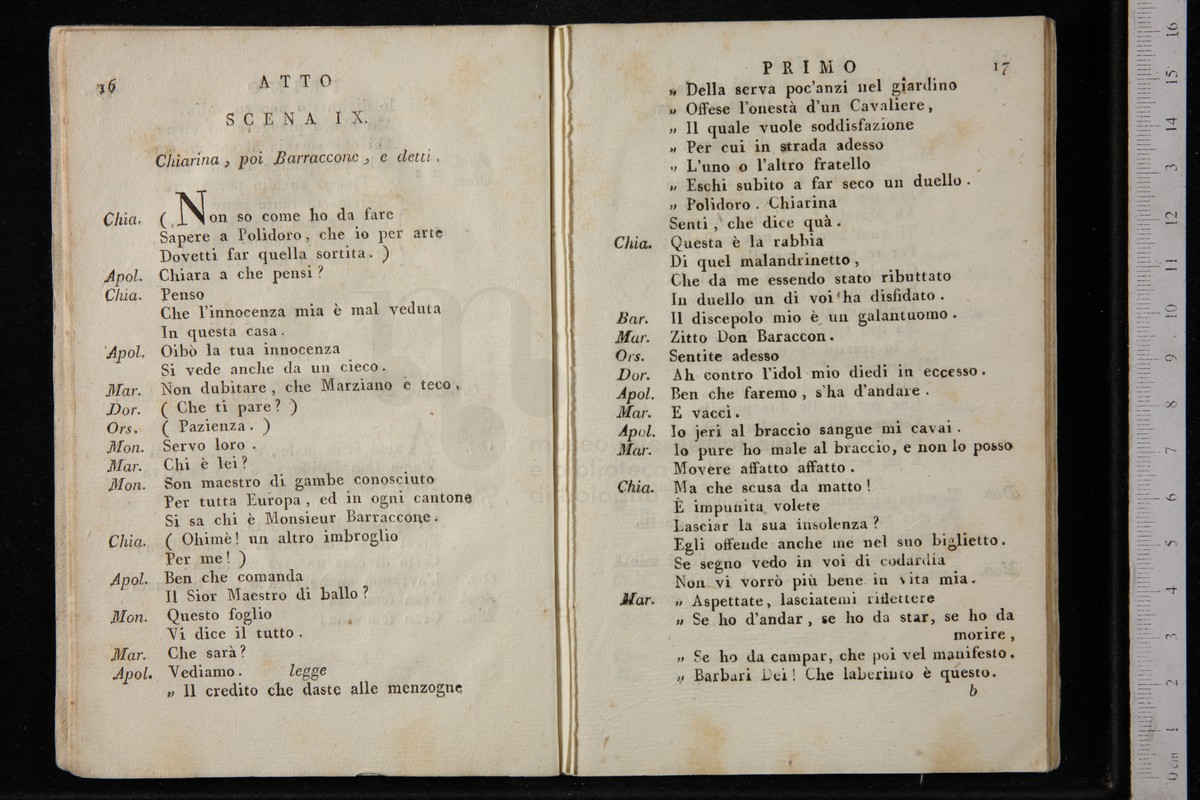 16
ATTO
SCENA IX.
Chiarina, poi Barraccone, e detti.
Chia. ( Non so come ho da fare
Sapere a Polidoro, che io per arte
Dovetti far quella sortita. )
Apol. Chiara a che pensi?
Chia. Penso
Che l'innocenza mia è mal veduta
In questa casa.
Apol. Oibò la tua innocenza
Si vede anche da un cieco.
Mar. Non dubitare, che Marziano è teco.
Dor. ( Che ti pare? )
Ors. ( Pazienza. )
Mon. Servo loro.
Mar. Chi è lei?
Mon. Son maestro di gambe conosciuto
Per tutta Europa, ed in ogni cantone
Si sa chi è Monsieur Barraccone.
Chia. ( Ohimè! un altro imbroglio
Per me! )
Apol. Ben che comanda
Il Sior Maestro di ballo?
Mon. Questo foglio
Vi dice il tutto.
Mar. Che sarà?
Apol. Vediamo. legge
„ Il credito che daste alle menzogne
PRIMO
17
„ Della serva poc'anzi nel giardino
„ Offese l'onestà d'un Cavaliere,
„ Il quale vuole soddisfazione
„ Per cui in strada adesso
„ L'uno o l'altro fratello
„ Eschi subito a far seco un duello.
„ Polidoro. Chiarina
Senti, che dice quà.
Chia. Questa è la rabbia
Di quel malandrinetto,
Che da me essendo stato ributtato
In duello un di voi ha disfidato.
Bar. Il discepolo mio è un galantuomo.
Mar. Zitto Don Baraccon.
Ors. Sentite adesso
Dor. Ah contro l'idol mio diedi in eccesso.
Apol. Ben che faremo, s'ha d'andare.
Mar. E vacci.
Apol. Io jeri al braccio sangue mi cavai.
Mar. Io pure ho male al braccio, e non lo posso
Movere affatto affatto.
Chia. Ma che scusa da matto!
E impunita volete
Lasciar la sua insolenza?
Egli offende anche me nel suo biglietto.
Se segno vedo in voi di codardía
Non vi vorrò più bene in vita mia.
Mar. „ Aspettate, lasciatemi riflettere
„ Se ho d'andar, se ho da star, se ho da
morire,
„ Se ho da campar, che poi vel manifesto.
„ Barbari Dei! Che laberinto è questo.
b
museo
e biblioteca
di bologna
0 cm 1 2 3 4 5 6 7 8 9 10 11 12 13 14 15 16